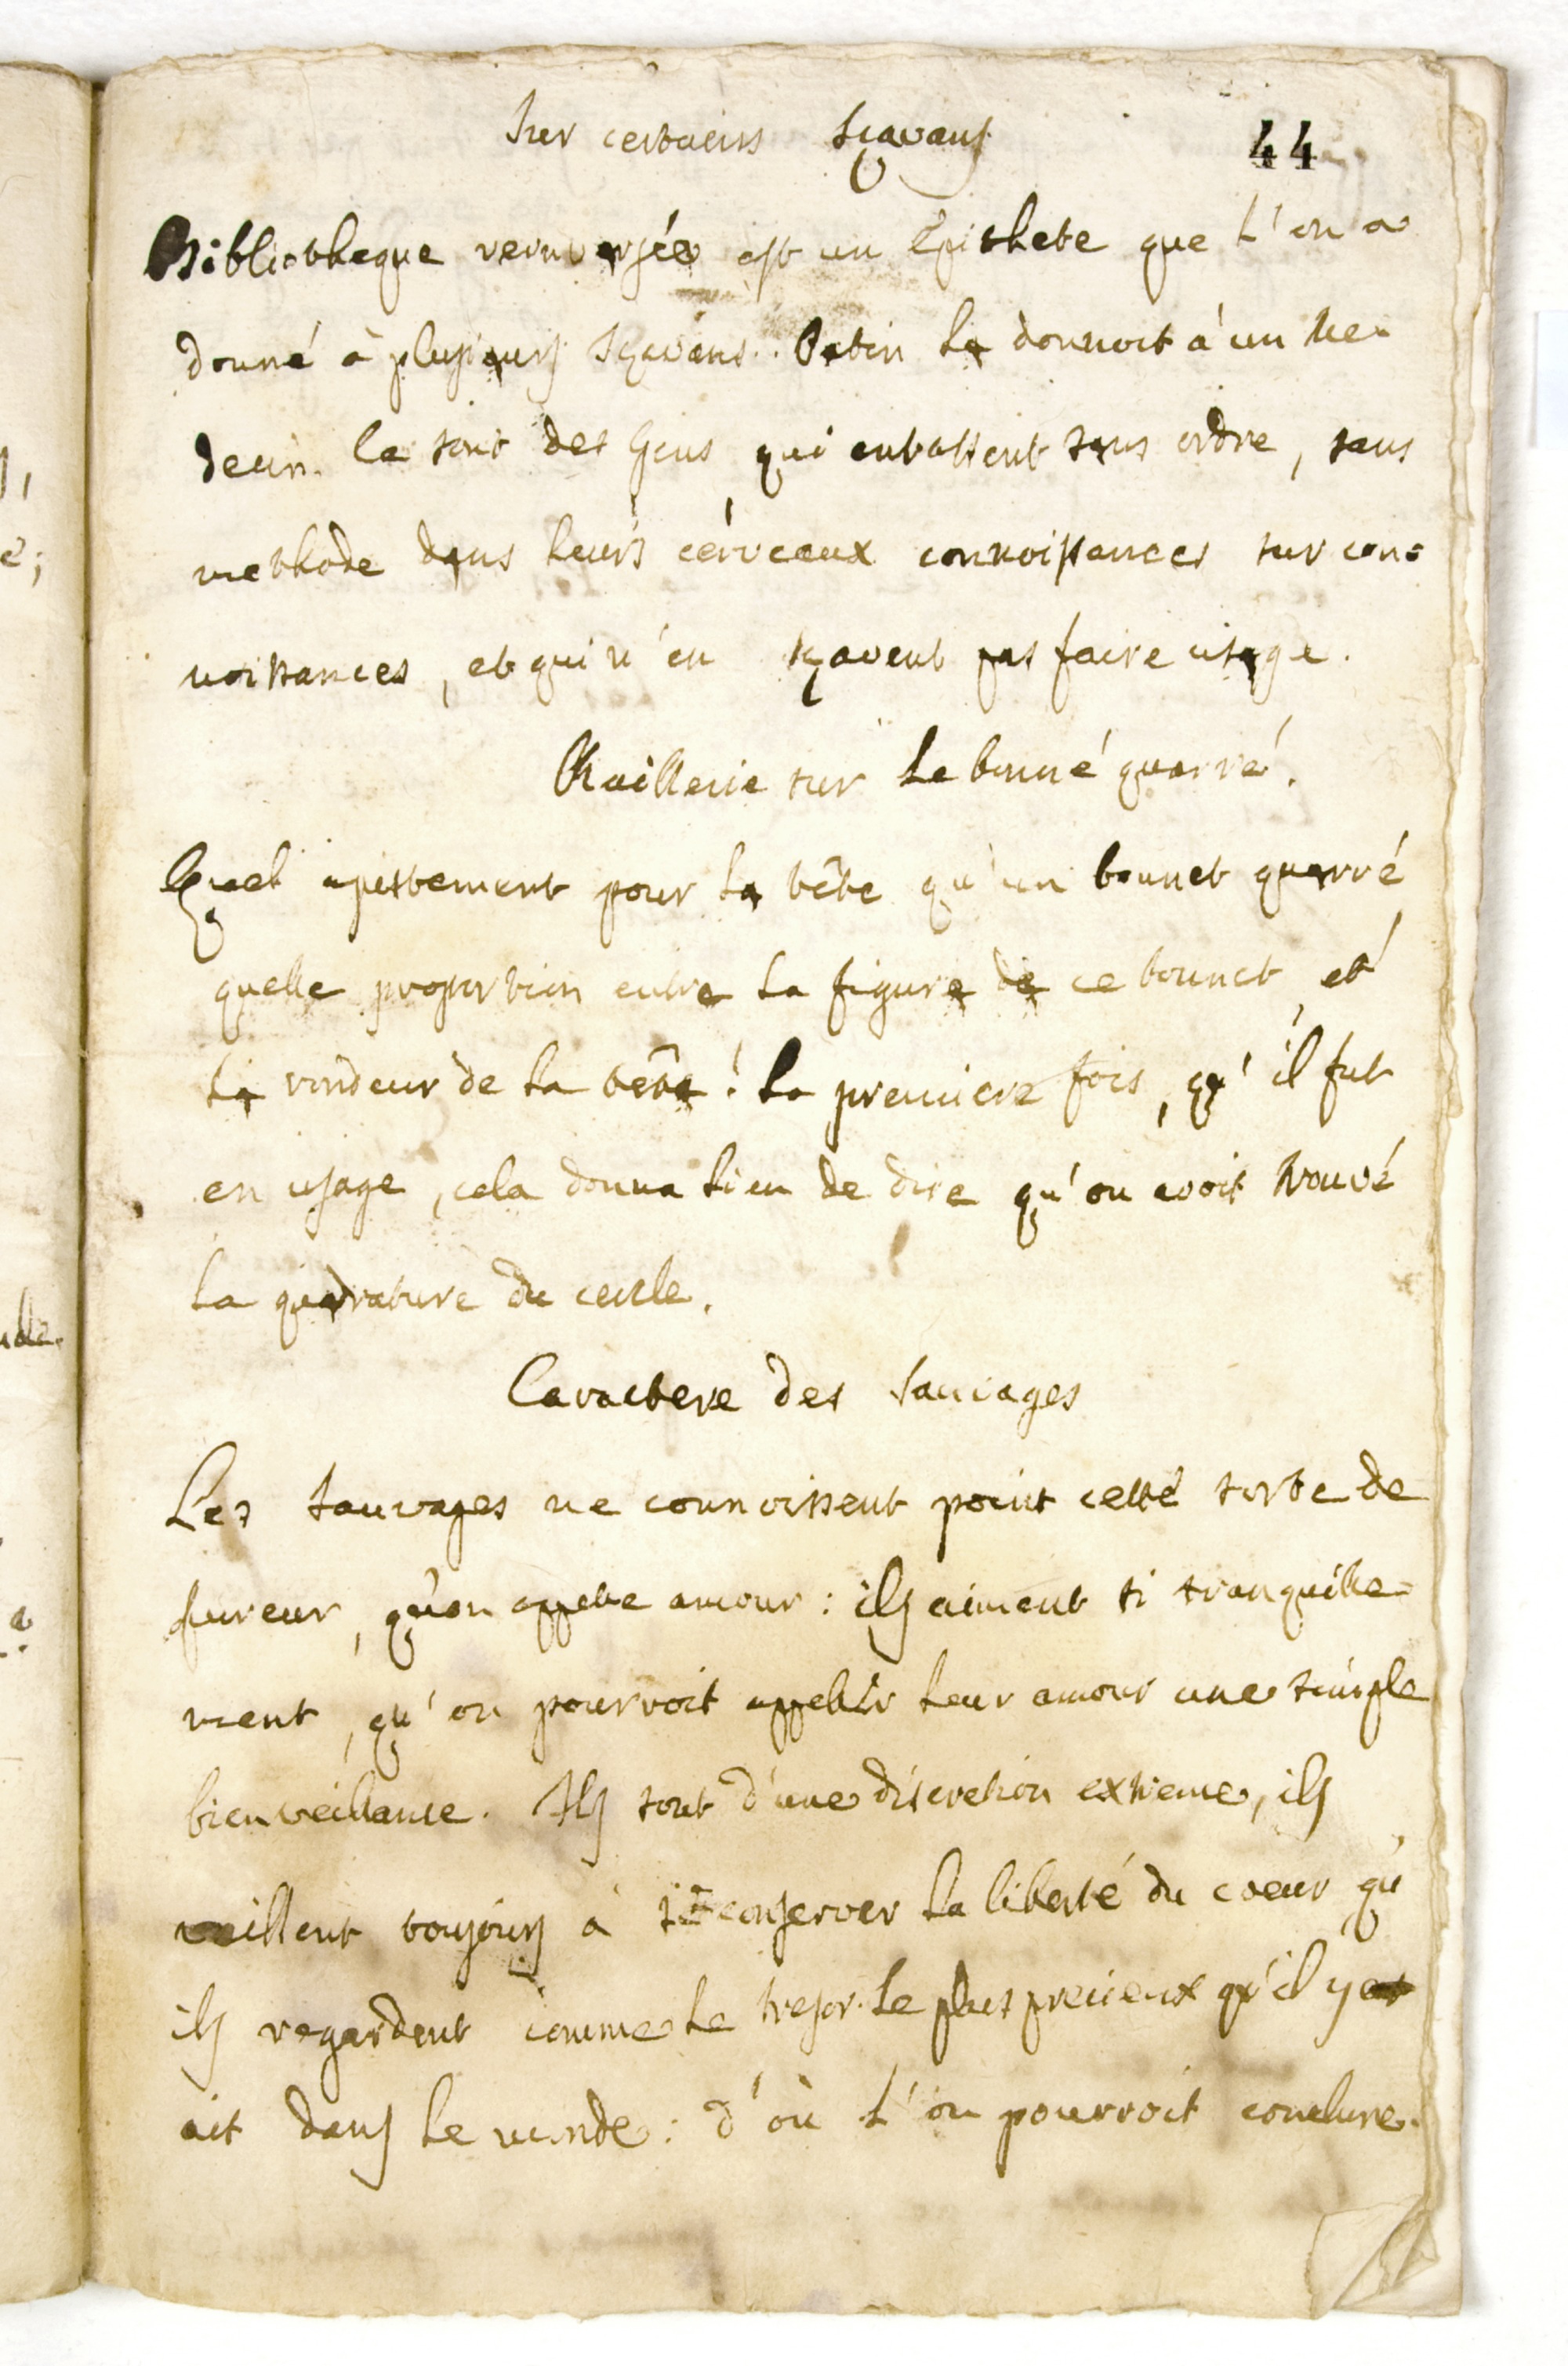 Sur certains sçavans
44
Bibliotheque renversée est un Epithete que l'on a
donné à plusieurs Sçavans. Patin la donnoit à un Me-
decin. Ce sont des Gens qui entassent sans ordre, sans
methode dans leurs cerveaux connoissances sur con-
noissances, et qui n'en sçavent pas faire usage.
Raillerie sur le bonné quarré.
Quel ajustement pour la tête qu'un bonnet quarré
quelle proportion entre la figure de ce bonnet, et
la rondeur de la tête! la premiere fois, qu'il fut
en usage, cela donna lieu de dire qu'on avoit trouvé
la quadrature du cercle.
Caractere des Sauvages
Les Sauvages ne connoissent point cette sorte de
fureur, qu'on appelle amour: ils aiment si tranquille-
ment, qu'on pourroit appeller leur amour une simple
bienveillance. Ils sont d'une discretion extreme, ils
veillent toujours à se conserver la liberté du coeur qu'
ils regardent comme le tresor le plus precieux qu'il y
ait dans le monde: d'où l'on pourroit conclure